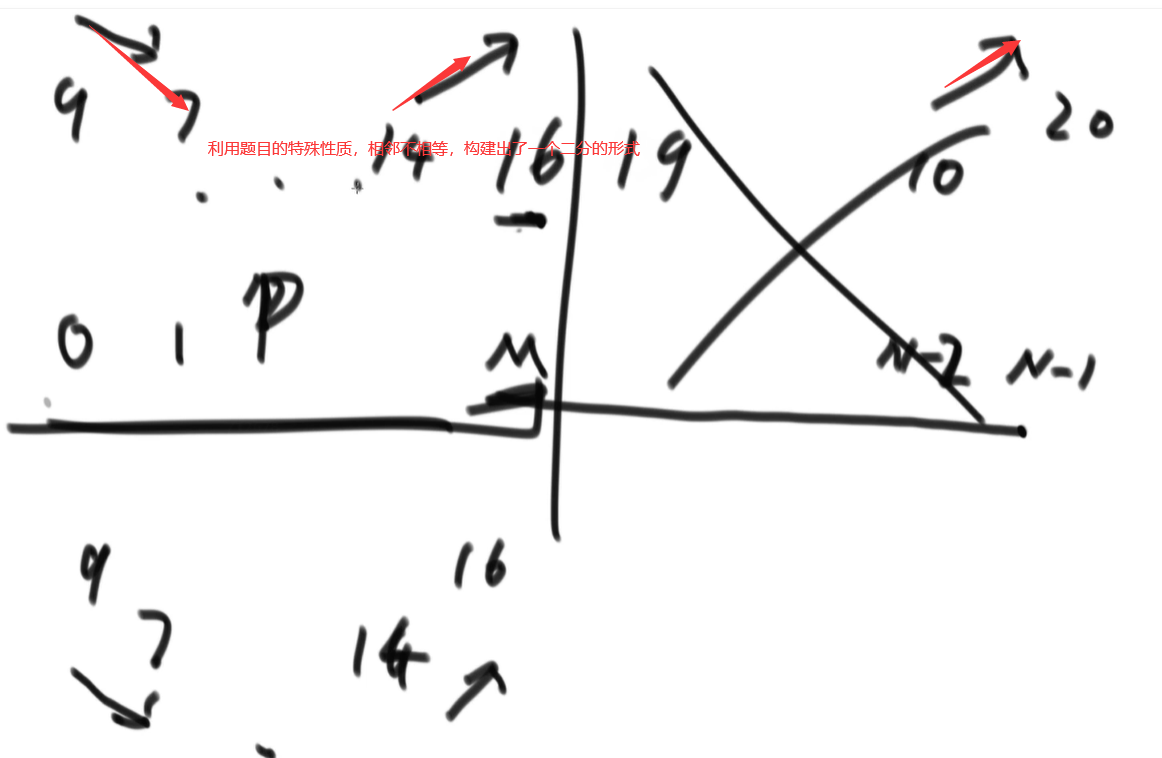 9 7 14 16 19 10 20
利用题目的特殊性质，相邻不相等，构建出了一个二分的形式
0 1 P M N-2 N-1
9 7 14 16